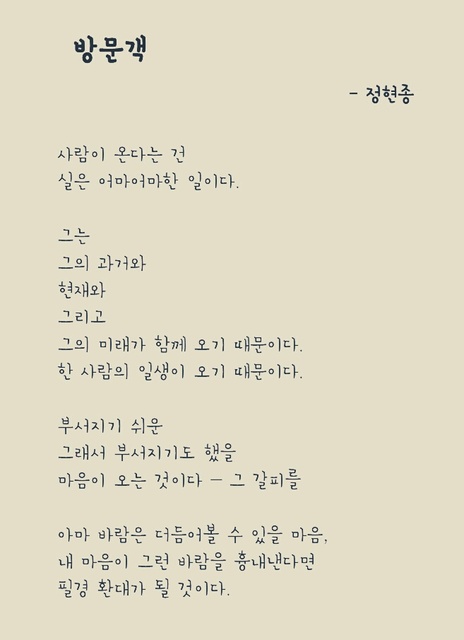 방문객
- 정현종
사람이 온다는 건
실은 어마어마한 일이다.
그는
그의 과거와
현재와
그리고
그의 미래가 함께 오기 때문이다.
한 사람의 일생이 오기 때문이다.
부서지기 쉬운
그래서 부서지기도 했을
마음이 오는 것이다 - 그 갈피를
아마 바람은 더듬어볼 수 있을 마음,
내 마음이 그런 바람을 흉내낸다면
필경 환대가 될 것이다.